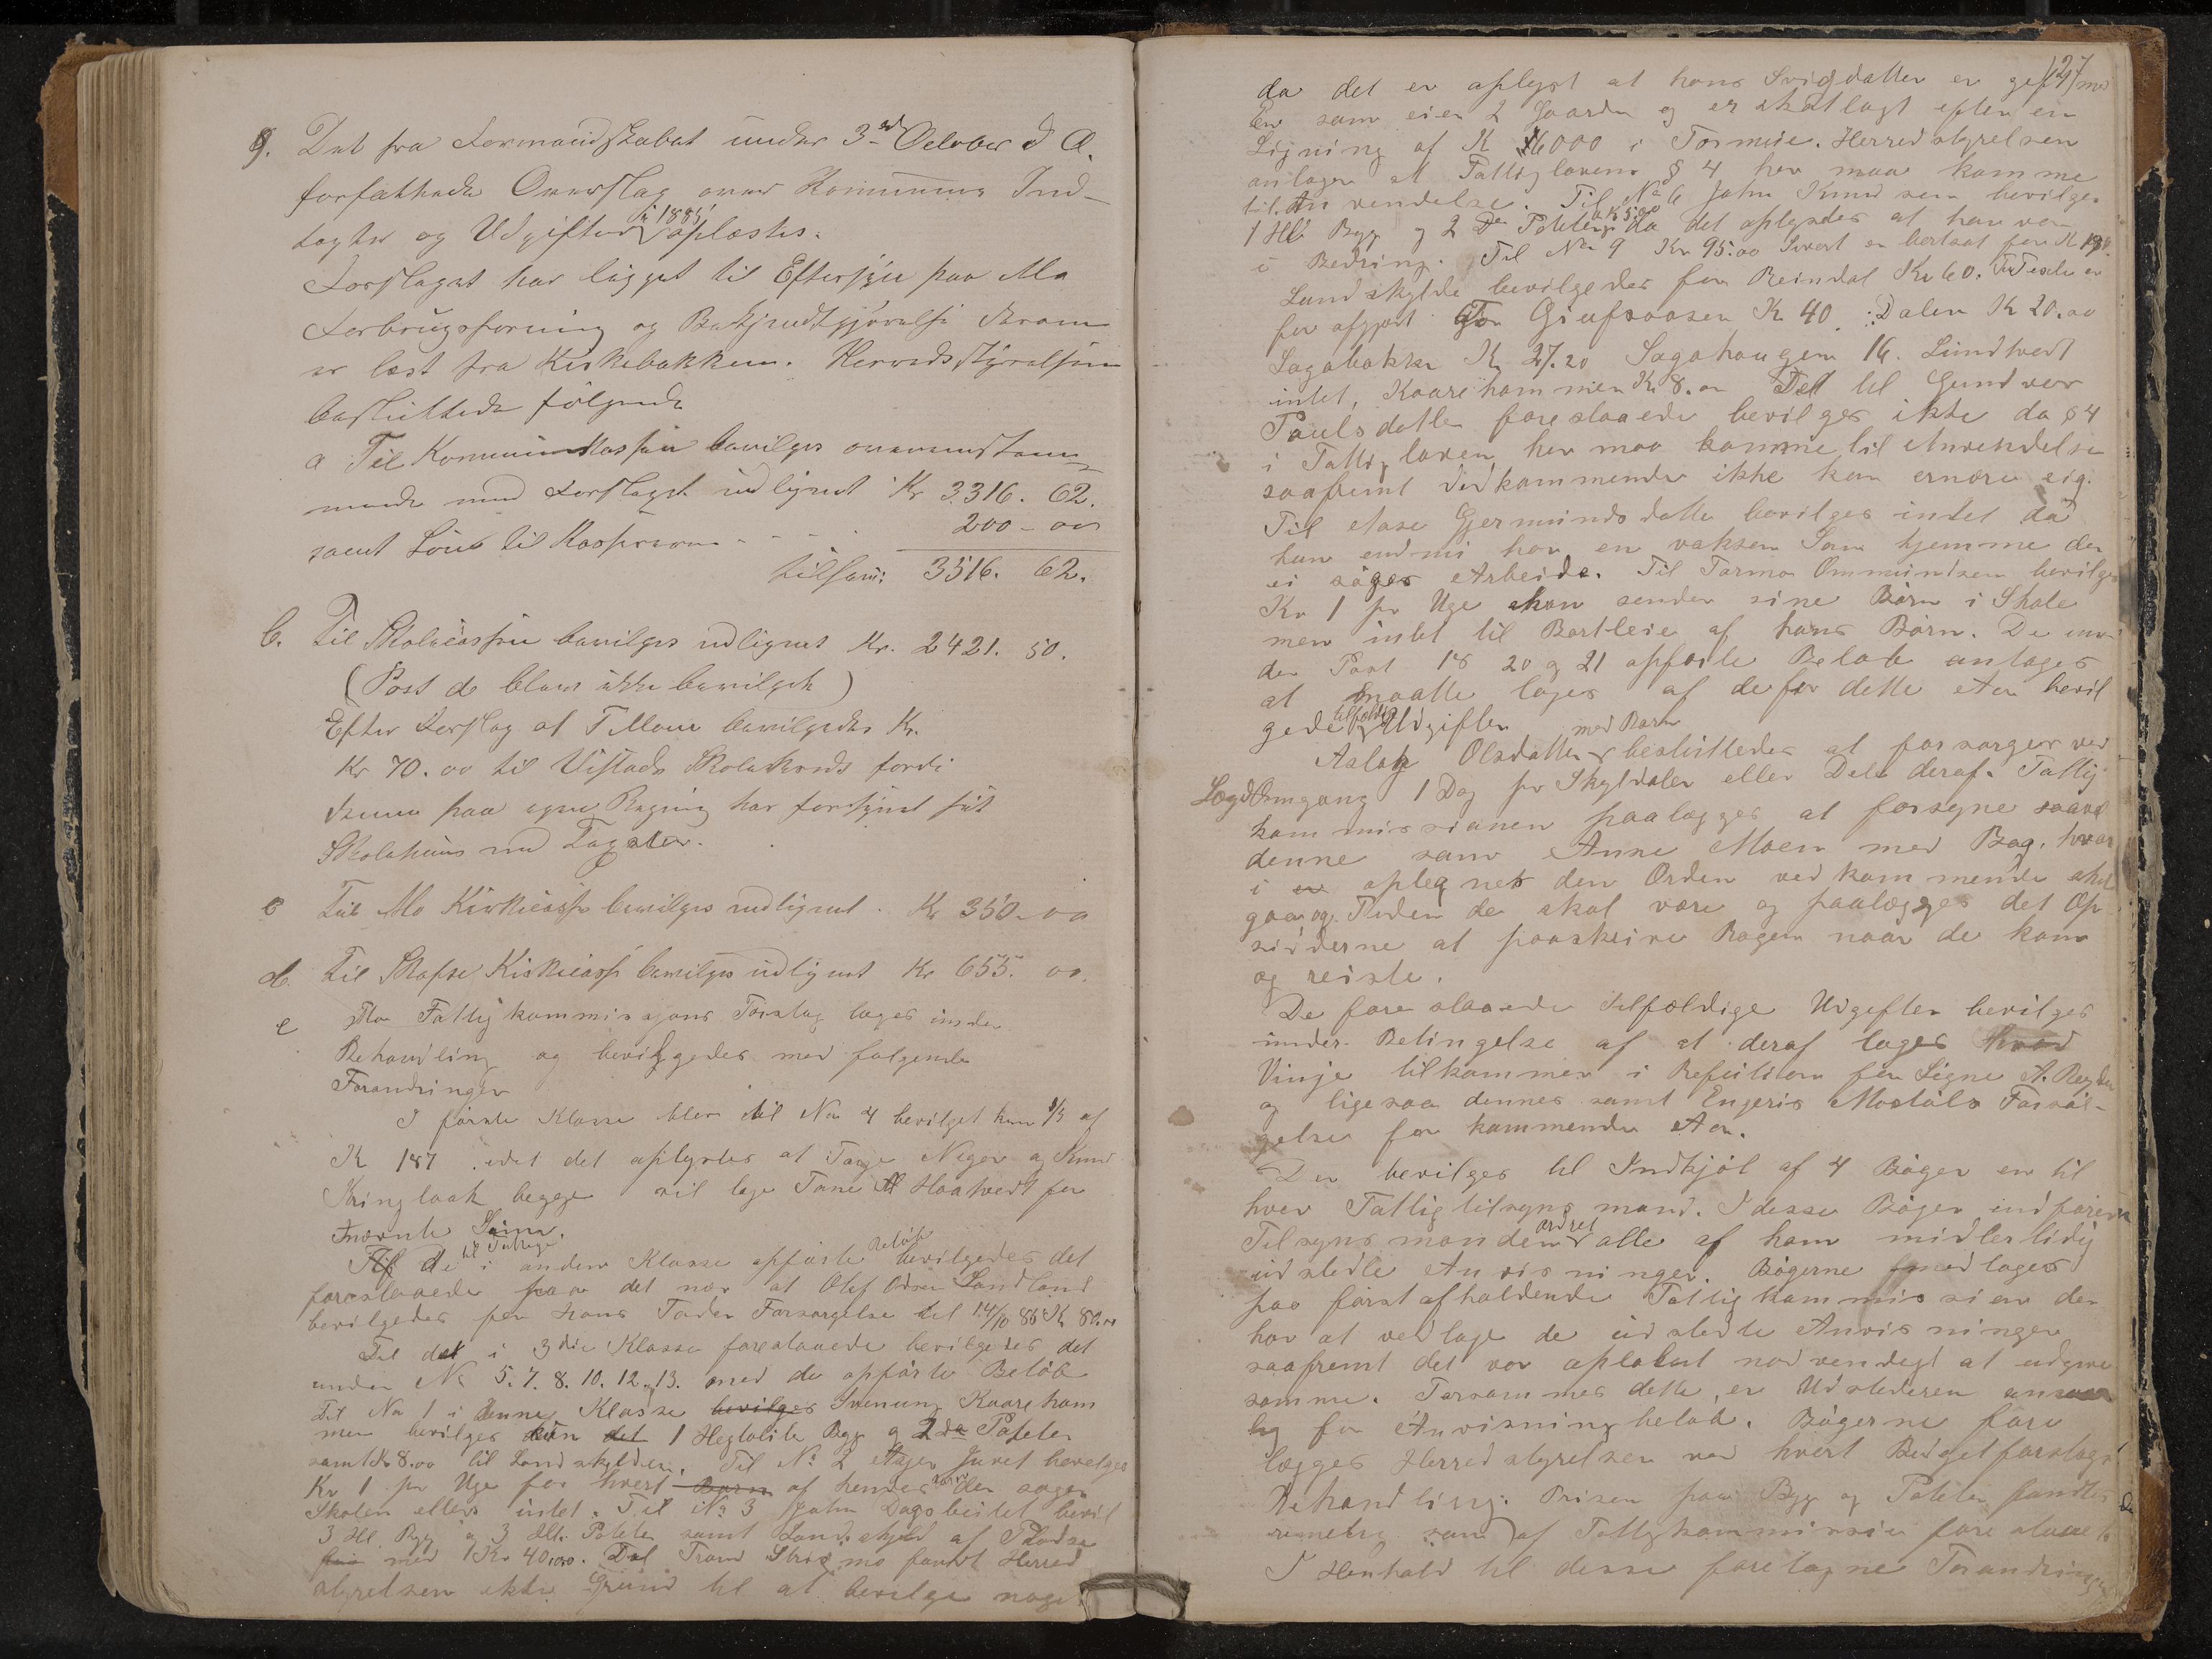 9. Det fra Formandskabet under 3die October d A.
forfattede Overslag over Komunens Ind-
tægter og Udgifter i 1885 oplæstes.
Forslaget har ligget til Eftersyn paa Mo
Forbrugsforning og Bekjendtgjørelse derom
er læst fra Kirkebakken. Herredsstyrelsen
besluttede følgende
a Til Kommunekassen bevilges overensstem-
mende med Forslaget udlignet Kr 3316. 62.
samt Løn til Kassereren - - - 200 - 00
tilsam: 3516. 62.
b. Til Skolekassen bevilges udlignet Kr. 2421. 50.
(Post d blev ikke bevilget)
Efter Forslag af T Moen bevilgedes Kr.
Kr 70. 00 til Vistads Skolekreds fordi
denne paa egen Regning har forsynet sit
Skolehuus med Tagsten.
c Til Mo Kirkecasse bevilges udlignet . Kr 350 - 00
d. Til Skafse Kirkecasse bevilges udlignet Kr 655. 00.
e Mo Fattigkommissions Forslag toges under
Behandling og bevilgedes med følgende
Forandringer
I første Klasse blev til No 4 bevilget kun 1/3 af
Kr 187 . idet det oplystes at Tarje Neger og Knud
Kringlaak begge vil tage Tone Haatvedt for
nævnte Sum.
Til de til Tillæg i anden Klasse opførte Beløb bevilgedes det
foreslaaede paa det nær at Olef Olsen Sandland
bevilgedes for Hans Faders Forsørgelse til 14/10 86 Kr 80.00
Til det i 3die Klasse foreslaaede bevilgedes det
under No 5. 7. 8. 10. 12. 13. med de opførte Beløb
Til No 1 i denne Klasse bevilges Svenung Kaareham
mer bevilges kun det 1 Hegtoliter Byg og 2 do Poteter
samt Kr 8.00 til Landskylden. Til No 2 Aager Juvet bevilges
Kr 1 pr Uge for hvert Barn af hendes Børn der søger
Skolen ellers intet. Til No 3 John Dagsbeitet bevil
3 Hl. Byg og 3 Hl. Poteter samt Landskyld af Pladse
med Kr 40,00. Til Trond Strømo fandt Herred
styrelsen ikke Grund til at bevilge noget
127
da det er oplyst at hans Svigdatter er gift med
En som eier 2 Gaarde og er skatlagt efter en
Ligning af Kr 16000 i Tørmoe. Herredstyrelsen
antager at Fattiglovens § 4 her maa komme
til Anvendelse. Til No 6 John Knudsen bevilges
1 Hl. Byg og 2 Do Poteter a Kr 5.00 da det oplystes at han var
i Bedring. Til No 9 Kr 95.00 Sivert er bortsat for Kr
Landskylde bevilgedes for Reindal Kr 60.
for afgjort For Giufsaasen Kr 40 . Dalen Kr 20.00
Sagabakke Kr 27.20 Sagahaugen 16. Lundtvedt
intet, Kaarehammer Kr 8.00 Det til Gundvor
Paulsdatter foreslaaede bevilges ikke da § 4
i Fattigloven her maa komme til Anvendelse
saafremt Vedkommende ikke kan ernære sig.
Til Aase Gjermundsdatter bevilges intet da
hun endnu har en vaksen Søn hjemme der
ei søger Arbeide. Til Tarmo Ommundsen bevilges
Kr 1 pr Uge naar sender sine Børn i Skole
men intet til Bortleie af hans Børn. De un-
der Post 18 20 og 21 opførte Beløb antages
at maatte tages af de for dette Aar bevil
gede tilfældige Udgifter
Aslaug Olsdatter med Barn besluttedes at forsørges ved
Lægdomgang 1 Dag pr Skyldaler eller Dele deraf. Fattig
kommissionen paalægges at forsyne saavel
denne som Anne Moen med Bog, hvor
i er optegnet den Orden vedkommende skal
gaa, og Tiden de skal være og paalægges det Op-
sidderne at paaskrive Bogen naar de kom
og reiste.
De foreslaaede tilfældige Udgifter bevilges
under Betingelse af at deraf tages hvad
Vinje tilkommer i Refusion for Signe A. Bergdn
og ligesaa dennes samt Engeris Mostøls Forsør-
gelse for kommende Aar.
Der bevilges til Indkjøb af 4 Bøger en til
hver Fattigtilsynsmand. I desse Bøger indføres
Tilsynsmanden ordret alle af ham midlertidig
udstedte Anvisninger. Bøgerne medtages
paa først afholdende Fattigkommission der
har at vedtage de udstedte Anvisninger
saafremt det var aplolut nødvendigt at udgive
samme. Forsømmes dette, er Udstederen ansvar
lig for Anvisningbeløb. Bøgerne fore
lægges Herredstyrelsen ved hvert Budgetforslags
Behandling. Prisen paa Byg og Poteter fandtes
rimelig som af Fattigkommissionen foreslaaet
I Henhold til desse foretagne Forandringer